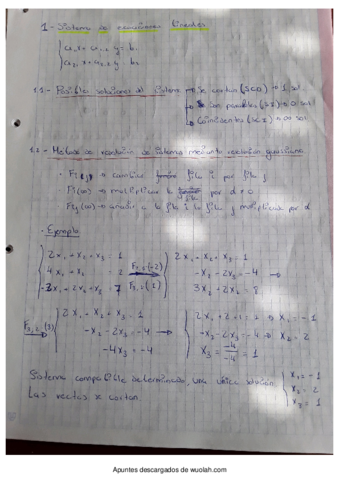 1- Sistema de ecuaciones lineales
a₁₁x + a₁₂ y = b₁
a₂₁ x + a₂₂ y = b₂
1.1 - Posibles soluciones del sistema
se cortan (SCD) → 1 sol
Son paralelas (SI) → 0 sol
Coincidentes (SCI) → ∞ sol
1.2 - Método de resolución de sistemas mediante reducción gaussiana
→ cambiar fila i por fila j
→ multiplicar la fila por α ≠ 0
→ añadir a la fila i la fila j multiplicada por α
· Ejemplo
2x₁ + x₂ + x₃ = 1
4x₁ + x₂ = -2
-2x₁ + 2x₂ + x₃ = 7
2x₁ + x₂ + x₃ = 1
-x₂ - 2x₃ = -4 →
3x₂ + 2x₃ = 8
2x₁ + x₂ + x₃ = 1
-x₂ - 2x₃ = -4 →
-4x₃ = -4
2x₁ + 2 + 1 = 1 → x₁ = -1
-x₂ - 2x₃ = -4 → x₂ = 2
x₃ = -4/-4 = 1
Sistema compatible determinado, una única solución
x₁ = -1
x₂ = 2
x₃ = 1
Las rectas se cortan.
Apuntes descargados de wuolah.com